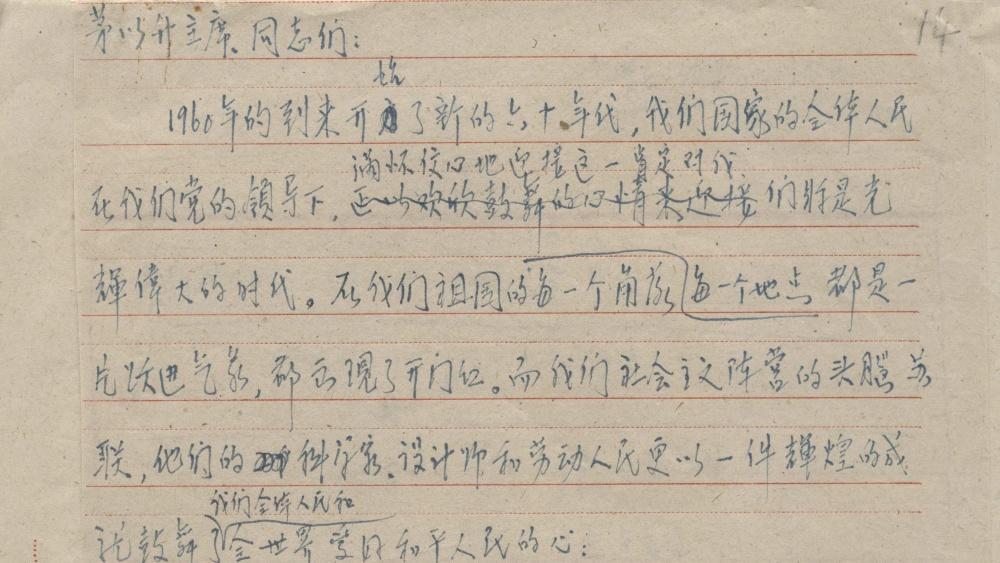 14
茅以升主席、同志们：
始
1960年的到来开了新的六十年代，我们国家的全体人民
满怀信心地迎接这一肯定时代
在我们党的领导下，正以欢欣鼓舞的心情来迎接们将是光
輝偉大的时代。在我们祖国的每一个角落每一个地点都是一
片跃进气象，都出現了开门红。而我们社会主义阵营的头腦苏
联，他们的科学家、设计师和劳动人民更以一件輝煌的成
我们全体人民和
就鼓舞了全世界爱好和平人民的心：